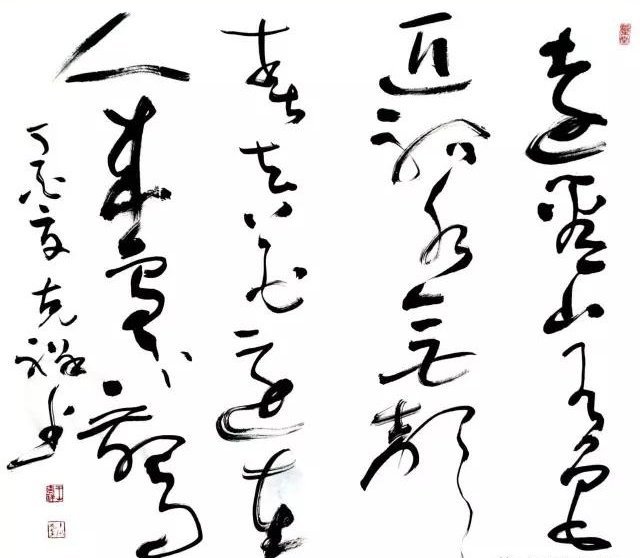 遠看山有色
近聽水無聲
春去花還在
人來鳥不驚
丁 夏克祥書